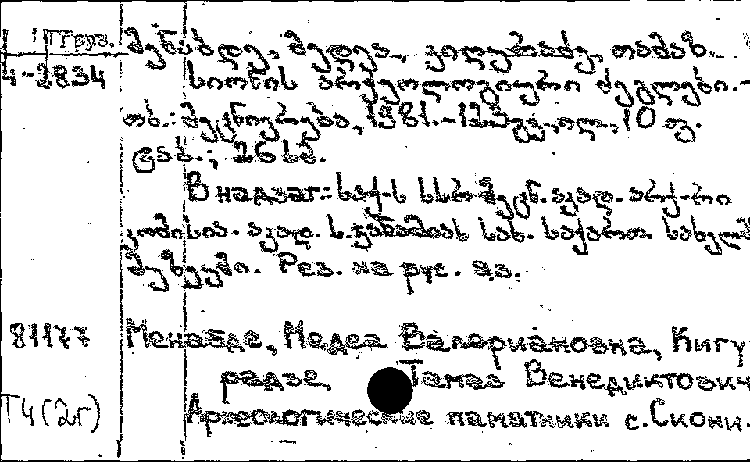 Груз.
მენაბდე, მედეა, კიღურაძე, თამაზ.
4-2834
სიონის არქეოლოგიური ძეგლები.-
თბ.: მეცნიერება, 1981.-123 გვ., ილ., 10 ფ.
ტაბ.; 26 სმ.
В надзаг.: საქ-ს სსრ მეცნ. აკად. არქ-რი
კომისია. აკად. ს. ჯანაშიას სახ. საქართ. სახელმ
მუზეუმი. Рез. на рус. яз.
81177 Менабде, Медеа Валериановна, Кигу
радзе, Тамаз Венедиктович
Т4 (2г) Археологические памятники с. Сиони.